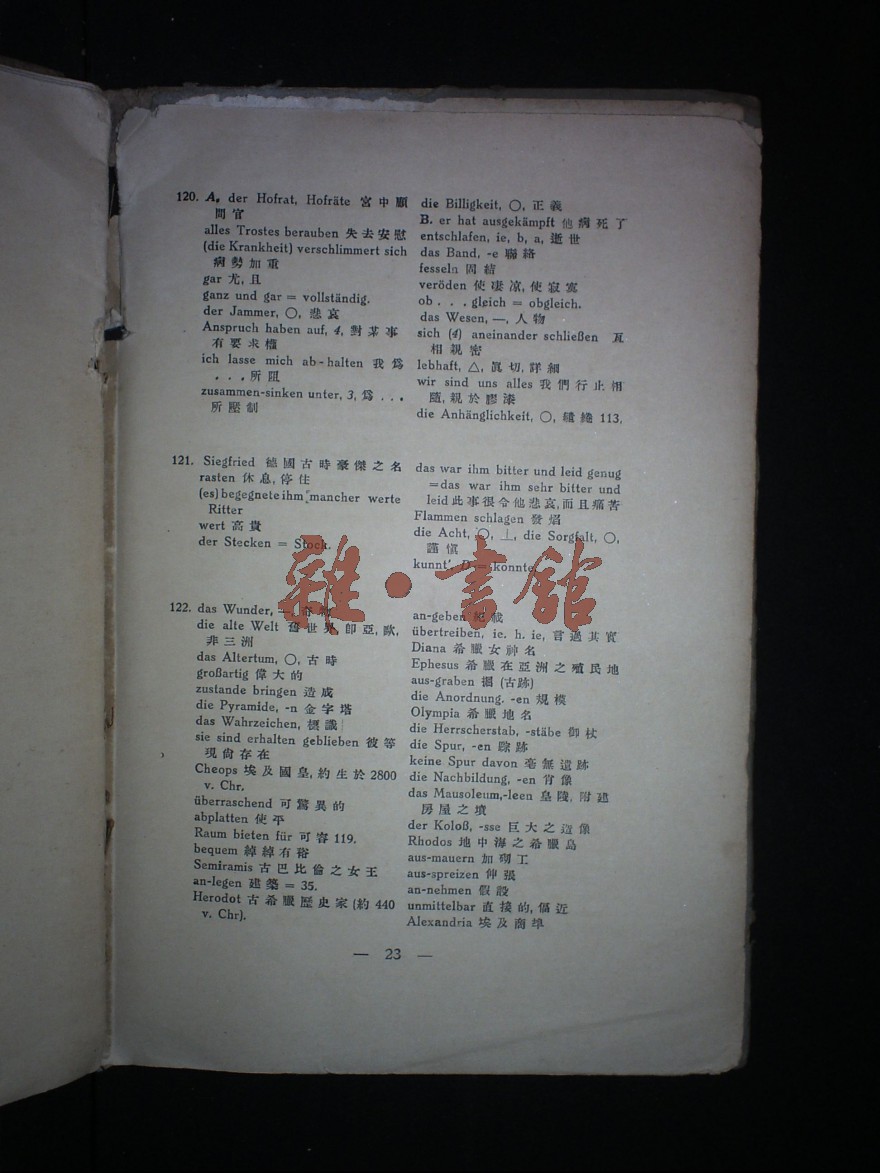 120. A. der Hofrat, Hofräte 宮中顧
問官
alles Trostes berauben 失去安慰
(die Krankheit) verschlimmert sich
病勢加重
gar 尤, 且
ganz und gar = vollständig.
der Jammer, ○, 悲哀
Anspruch haben auf, 4, 對某事
有要求權
ich lasse mich ab-halten 我爲
...所阻
zusammen-sinken unter, 3, 爲...
所壓制
die Billigkeit, ○, 正義
B. er hat ausgekämpft 他病死了
entschlafen, ie, b, a, 逝世
das Band, -e 聯絡
fesseln 固結
veröden 使凄凉, 使寂寞
ob . . . gleich = obgleich.
das Wesen, —, 人物
sich (4) aneinander schließen 互
相親密
lebhaft, △, 眞切, 詳細
wir sind uns alles 我們行止相
隨, 親於膠漆
die Anhänglichkeit, ○, 繾綣 113.
121. Siegfried 德國古時豪傑之名
rasten 休息, 停住
(es) begegnete ihm mancher werte
Ritter
wert 高貴
der Stecken = Stock.
das war ihm bitter und leid genug
=das war ihm sehr bitter und
leid 此事很令他悲哀, 而且痛苦
Flammen schlagen 發焰
die Acht, ○, ⊥, die Sorgfalt, ○,
謹愼
kunnt', = konnte.
雜·書館
122. das Wunder, —, 奇物
die alte Welt 舊世界, 卽亞, 歐,
非三洲
das Altertum, ○, 古時
großartig 偉大的
zustande bringen 造成
die Pyramide, -n 金字塔
das Wahrzeichen, 標識
sie sind erhalten geblieben 彼等
現尙存在
Cheops 埃及國皇, 約生於 2800
v. Chr.
überraschend 可驚異的
abplatten 使平
Raum bieten für 可容 119.
bequem 綽綽有裕
Semiramis 古巴比倫之女王
an-legen 建築 = 35.
Herodot 古希臘歷史家 (約 440
v. Chr).
an-geben 紀載
übertreiben, ie. h. ie, 言過其實
Diana 希臘女神名
Ephesus 希臘在亞洲之殖民地
aus-graben 掘 (古跡)
die Anordnung. -en 規模
Olympia 希臘地名
die Herrscherstab, -stäbe 御杖
die Spur, -en 踪跡
keine Spur davon 毫無遺跡
die Nachbildung, -en 肖像
das Mausoleum,-leen 皇陵, 附建
房屋之墳
der Koloß, -sse 巨大之造像
Rhodos 地中海之希臘島
aus-mauern 加砌工
aus-spreizen 伸張
an-nehmen 假設
unmittelbar 直接的, 偪近
Alexandria 埃及商埠
— 23 —